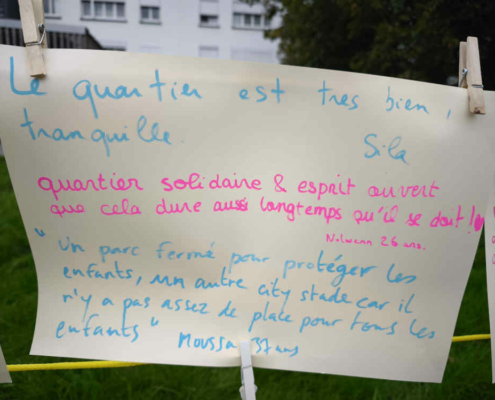 Le quartier est tres bien,
tranquille.
Sila
quartier solidaire & esprit ouvert
que cela dure aussi longtemps qu'il se doit !
Nolwenn 26 ans.
" Un parc fermé pour protéger les
enfants, un autre city stade car il
n'y a pas assez de place pour tous les
enfants "
Moussa 37 ans